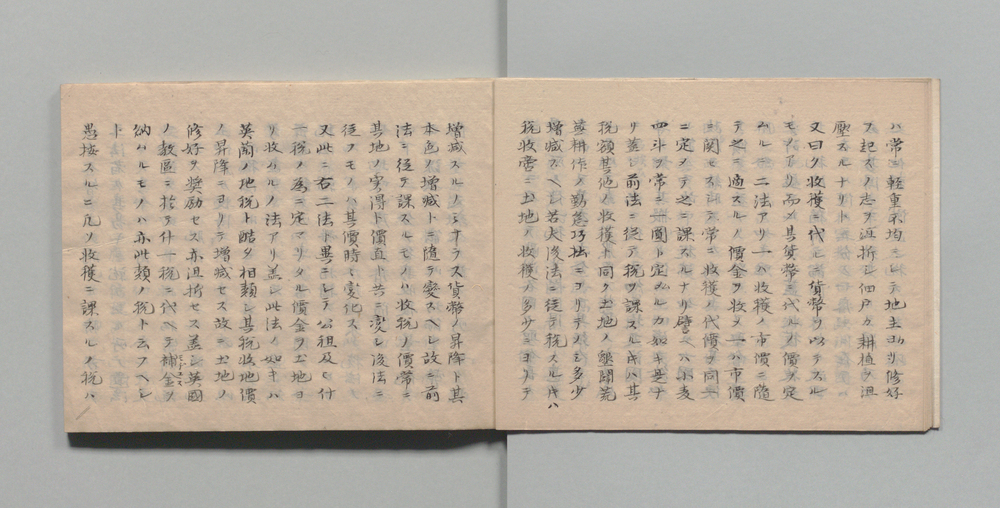 ハ常ニ軽重不均ニシテ地主ヨリ修好
ヲ起スノ志ヲ沮折シ佃戸カ耕植ヲ沮
壓スルナリト
又曰ク收獲ニ代ルニ貨幣ヲ以テスル
モノアリ而メ其貨幣ニ代ルノ價ヲ定
ムルニ二法アリ一ハ收獲ノ市價ニ隨
テ之ニ適スルノ價金ヲ收メ一ハ市價
ニ関セスシテ常ニ收獲ノ代價ヲ同一
ニ定メテ之ニ課スルナリ譬ヘハ小麦
四斗ヲ常ニ一圓ト定ムルカ如キ是ナ
リ蓋シ前法ニ從テ税ヲ課スルキハ其
税額其他ノ收獲ト同ク土地ノ墾闢荒
蕪耕作ノ勤怠巧拙ニヨリテノミ多少
増減スヘシ若夫後法ニ從テ税スルキハ
税收啻ニ土地ノ收獲ノ多少ニヨリテ
増減スルノミナラス貨幣ノ昇降ト其
本色ノ増減トニ隨テ變スヘシ故ニ前
法ニ從テ課スルモノハ收税ノ價常ニ
其地ノ実得ト價直ト共ニ變シ後法ニ
從フモノハ其價時々変化ス
又此ニ右二法ト異ニシテ公租及ヒ什
一税ノ為ニ定マリタル價金ヲ土地ヨ
リ收ムルノ法アリ蓋シ此法ノ如キハ
英蘭ノ地税ト酷タ相類シ其税收地價
ノ昇降ニヨリテ増減セス故ニ土地ノ
修好ヲ奨励セス亦沮折セス蓋シ英國
ノ教區ニ於テ什一税ニ代ヘテ補金ヲ
納ムルモノハ亦此類ノ税ト云フヘシ
ト
愚按スルニ凡ソ收獲ニ課スルノ税ハ